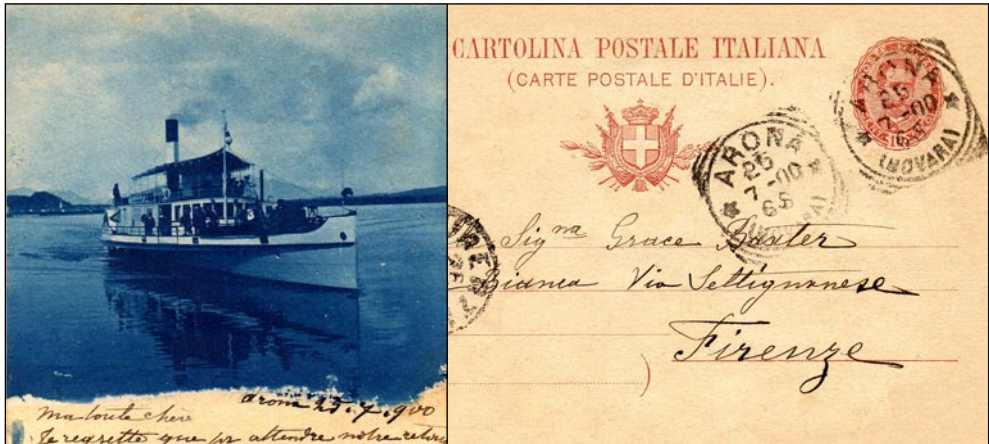 arona 25.7.900
Ma toute chère
Je regrette que pr attendre notre retour
CARTOLINA POSTALE ITALIANA
(CARTE POSTALE D'ITALIE).
ARONA
25
7-00
6S
(NOVARA)
ARONA
25
7-00
6S
(NOVARA)
Signa Grace Baxter
Bianca Via Settignanese
Firenze
)